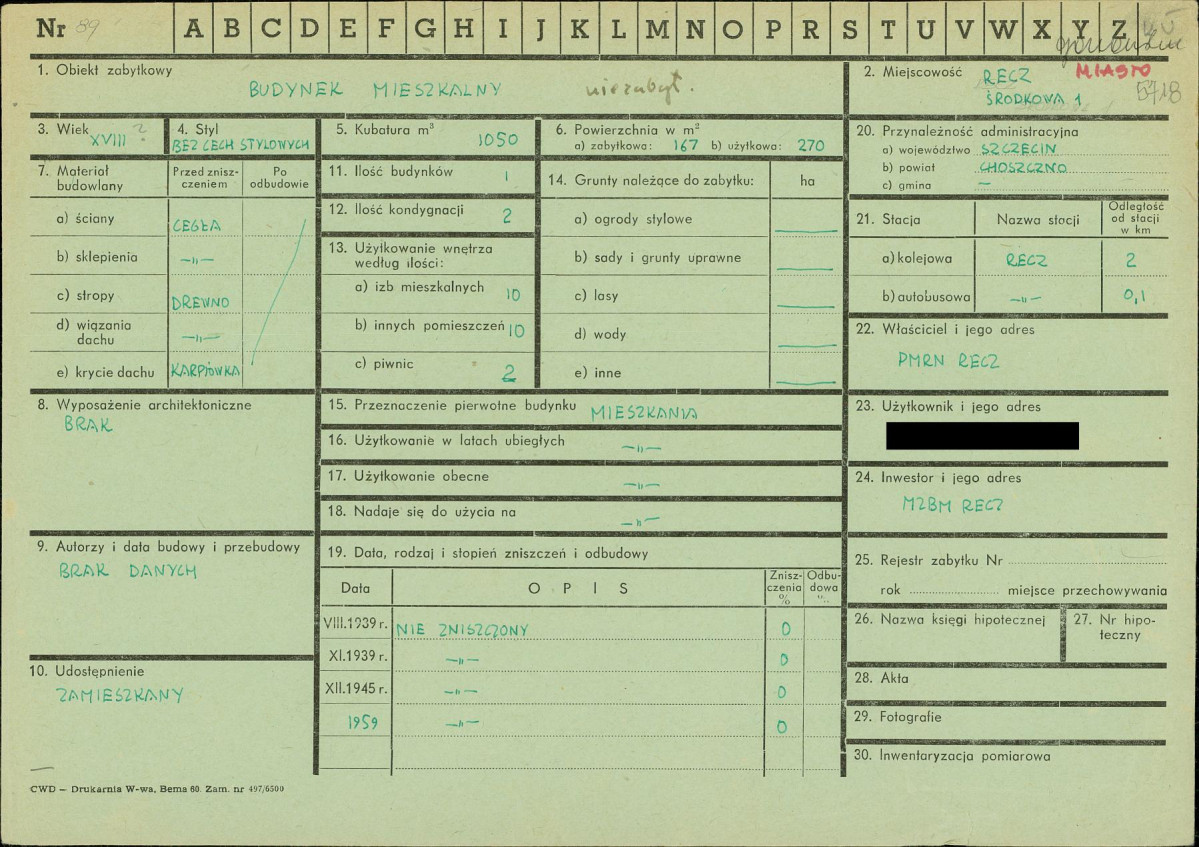 Nr 89 A B C D E F G H I J K L M N O P R S T U V W X Y Z
1. Obiekt zabytkowy
BUDYNEK MIESZKALNY niezabyt.
2. Miejscowość RECZ MIASTO
ŚRODKOWA 1 5718
3. Wiek XVIII ?
4. Styl
BEZ CECH STYLOWYCH
5. Kubatura m³ 1050
6. Powierzchnia w m²
a) zabytkowa: 167 b) użytkowa: 270
7. Materiał budowlany
Przed zniszczeniem
Po odbudowie
a) ściany CEGŁA
b) sklepienia —„—
c) stropy DREWNO
d) wiązania dachu —„—
e) krycie dachu KARPIÓWKA
8. Wyposażenie architektoniczne
BRAK
9. Autorzy i data budowy i przebudowy
BRAK DANYCH
10. Udostępnienie
ZAMIESZKANY
11. Ilość budynków 1
12. Ilość kondygnacji 2
13. Użytkowanie wnętrza
według ilości:
a) izb mieszkalnych 10
b) innych pomieszczeń 10
c) piwnic 2
14. Grunty należące do zabytku: ha
a) ogrody stylowe —
b) sady i grunty uprawne —
c) lasy —
d) wody —
e) inne —
15. Przeznaczenie pierwotne budynku MIESZKANIA
16. Użytkowanie w latach ubiegłych —„—
17. Użytkowanie obecne —„—
18. Nadaje się do użycia na —„—
19. Data, rodzaj i stopień zniszczeń i odbudowy
Data O P I S Zniszczenia % Odbudowa %
VIII.1939 r. NIE ZNISZCZONY 0
XI.1939 r. —„— 0
XII.1945 r. —„— 0
1959 —„— 0
20. Przynależność administracyjna
a) województwo SZCZECIN
b) powiat CHOSZCZNO
c) gmina —
21. Stacja Nazwa stacji Odległość od stacji w km
a) kolejowa RECZ 2
b) autobusowa —„— 0,1
22. Właściciel i jego adres
PMRN RECZ
23. Użytkownik i jego adres
24. Inwestor i jego adres
MZBM RECZ
25. Rejestr zabytku Nr
rok miejsce przechowywania
26. Nazwa księgi hipotecznej
27. Nr hipoteczny
28. Akta
29. Fotografie
30. Inwentaryzacja pomiarowa
CWD — Drukarnia W-wa, Bema 60. Zam. nr 497/6500